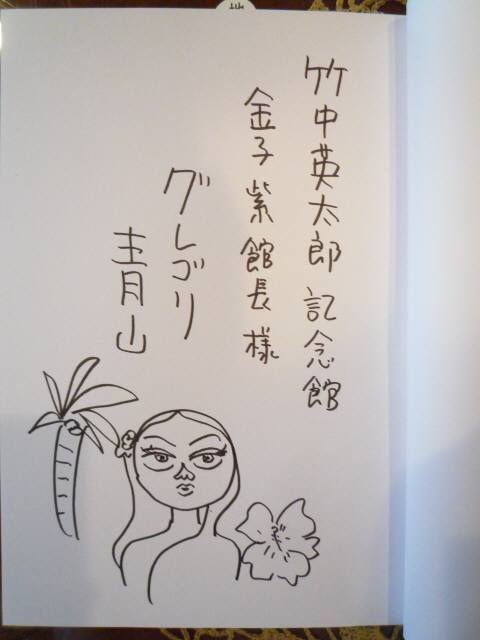 竹中英太郎記念館
金子紫館長様
グレゴリ
青山